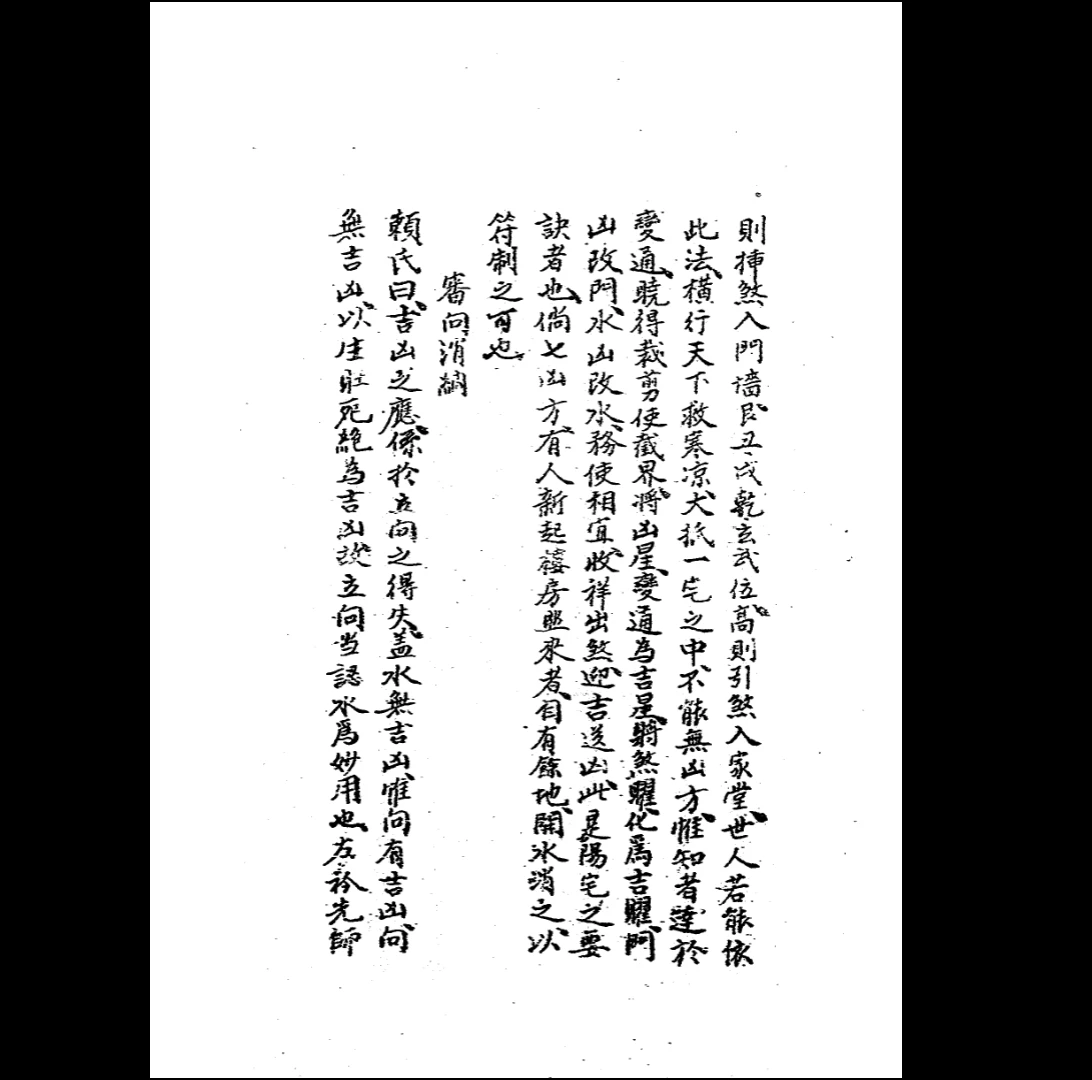 則揷煞入門墻艮丑戌乾玄武位高則引煞入家堂世人若能依
此法橫行天下救寒凉大抵一宅之中不能無凶方惟知者達於
變通曉得裁剪使截界將凶星變通為吉星將煞曜化爲吉曜門
凶改門水凶改水務使相宜收祥出煞迎吉送凶此是陽宅之要
訣者也倘七凶方有人新起樓房照來者自有餘地開水消之以
符制之可也
審向消納
賴氏曰吉凶之應係於立向之得失盖水無吉凶惟向有吉凶向
無吉凶以生旺死絕為吉凶故立向当認水爲妙用也左衿先師